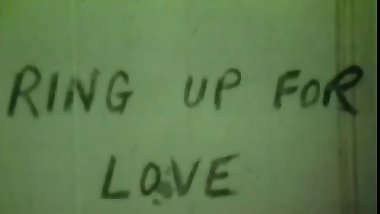 RING UP FOR
LOVE